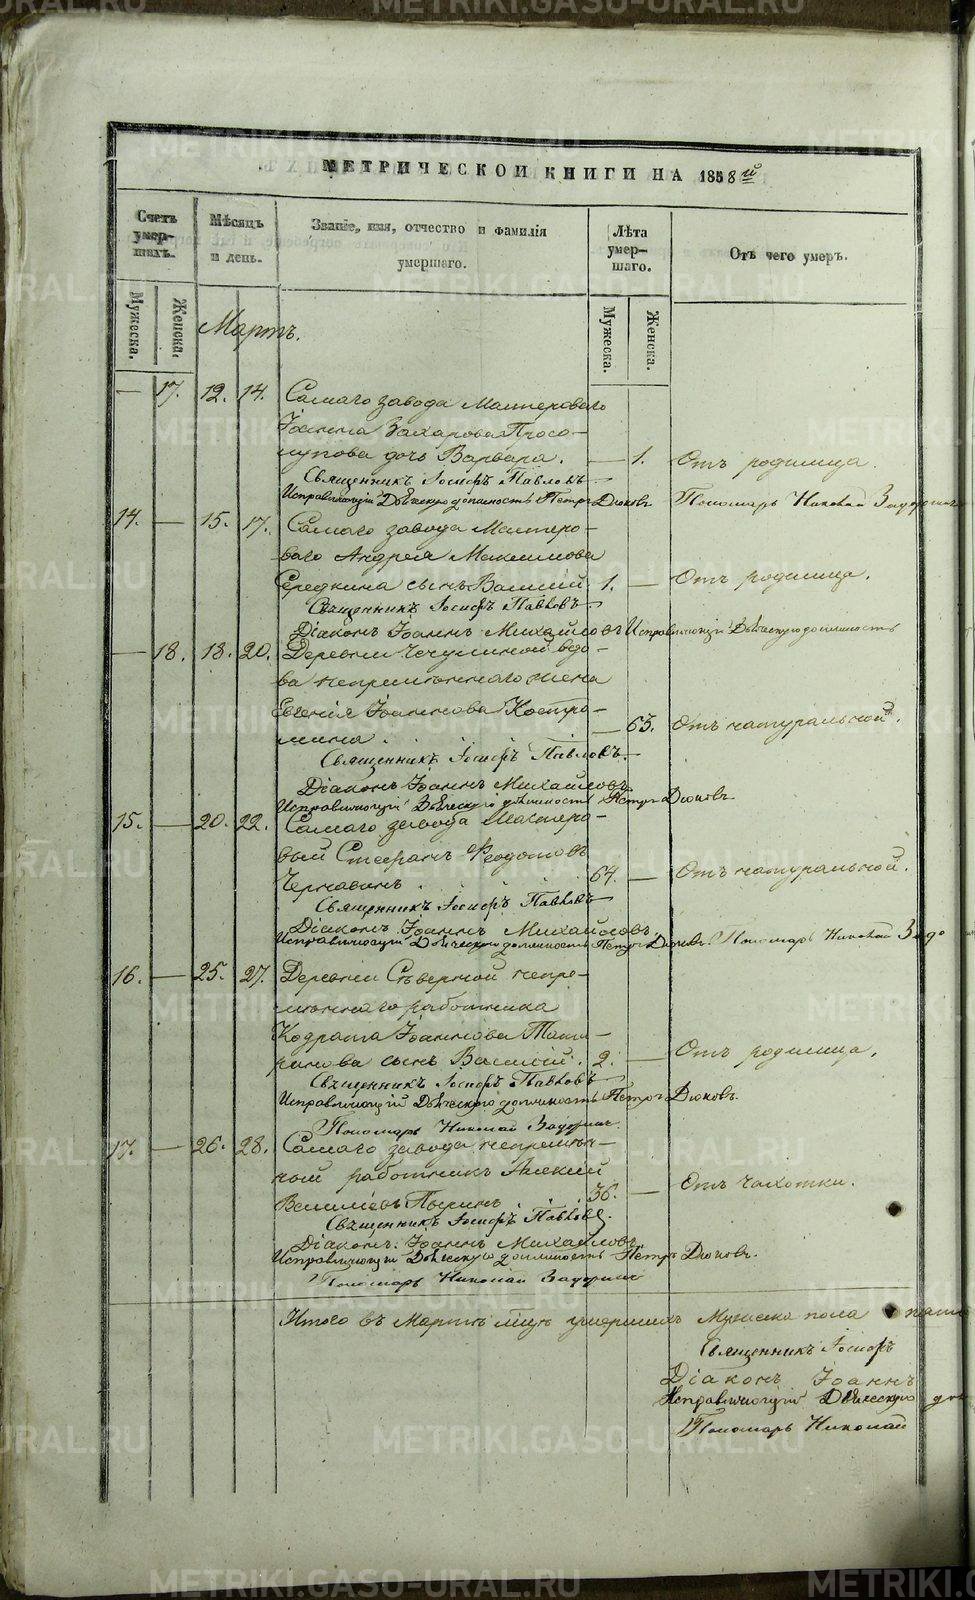 МЕТРИЧЕСКОЙ КНИГИ НА 1858й
Счетъ умер-шихъ.
Мѣсяцъ и день.
Званіе, имя, отчество и фамилія умершаго.
Лѣта умер-шаго.
Отъ чего умеръ.
Мужеска. Женска.
Мужеска. Женска.
Мартъ.
— 17. 12. 14. Самаго завода Мастероваго
Іоанна Захарова
дочь Варвара. — 1. Отъ родимца.
Священникъ Іосифъ Павловъ
Исправляющій Дьяческую должность Петръ Дюковъ Пономарь Николай
14. — 15. 17. Самаго завода Мастеро-
ваго Андрея Максимова
Середкина сынъ Василій 1. — Отъ родимца.
Священникъ Іосифъ Павловъ
Діаконъ Іоаннъ Михайловъ Исправляющій Дьяческую должность
— 18. 18. 20. Деревни вдо-
ва непремѣннаго жена
Евгенія Іоаннова Костро-
мина — 63. Отъ натуральной.
Священникъ Іосифъ Павловъ.
Діаконъ Іоаннъ Михайловъ
Исправляющій Дьяческую должность Петръ Дюковъ
15. — 20. 22. Самаго завода Мастеро-
вый Стефанъ Федотовъ
Чернавинъ 64. — Отъ натуральной.
Священникъ Іосифъ Павловъ
Діаконъ Іоаннъ Михайловъ
Исправляющій Дьяческую должность Петръ Дюковъ. Пономарь Николай
16. — 25. 27. Деревни Сѣверной непре-
мѣннаго работника
Кодрата Іоаннова Тата-
ринова сынъ Василій. 2. — Отъ родимца.
Священникъ Іосифъ Павловъ
Исправляющій Дьяческую должность Петръ Дюковъ.
Пономарь Николай
17. — 26. 28. Самаго завода непремѣн-
ной работникъ Алексій
36. — Отъ чахотки.
Священникъ Іосифъ Павловъ.
Діаконъ Іоаннъ Михайловъ
Исправляющій Дьяческую должность Петръ Дюковъ.
Пономарь Николай
Итого въ Мартѣ мцѣ умершихъ Мужеска пола
Священникъ Іосифъ
Діаконъ Іоаннъ
Исправляющій Дьяческую
Пономарь Николай
METRIKI.GASO-URAL.RU